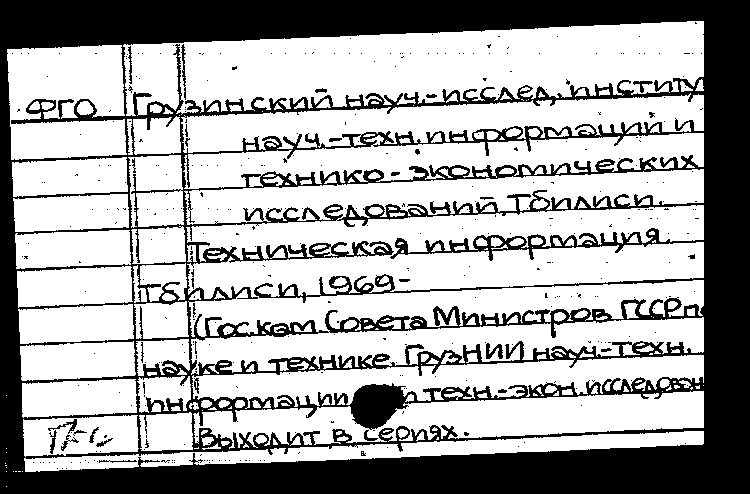 ФГО Грузинский науч.-исслед. институ
науч.-техн. информации и
технико-экономических
исследований. Тбилиси.
Техническая информация.
Тбилиси, 1969-
(Гос. ком. Совета Министров ГССР п
науке и технике. ГрузНИИ науч.-техн.
информации и техн.-экон. исследован
Выходит в сериях.